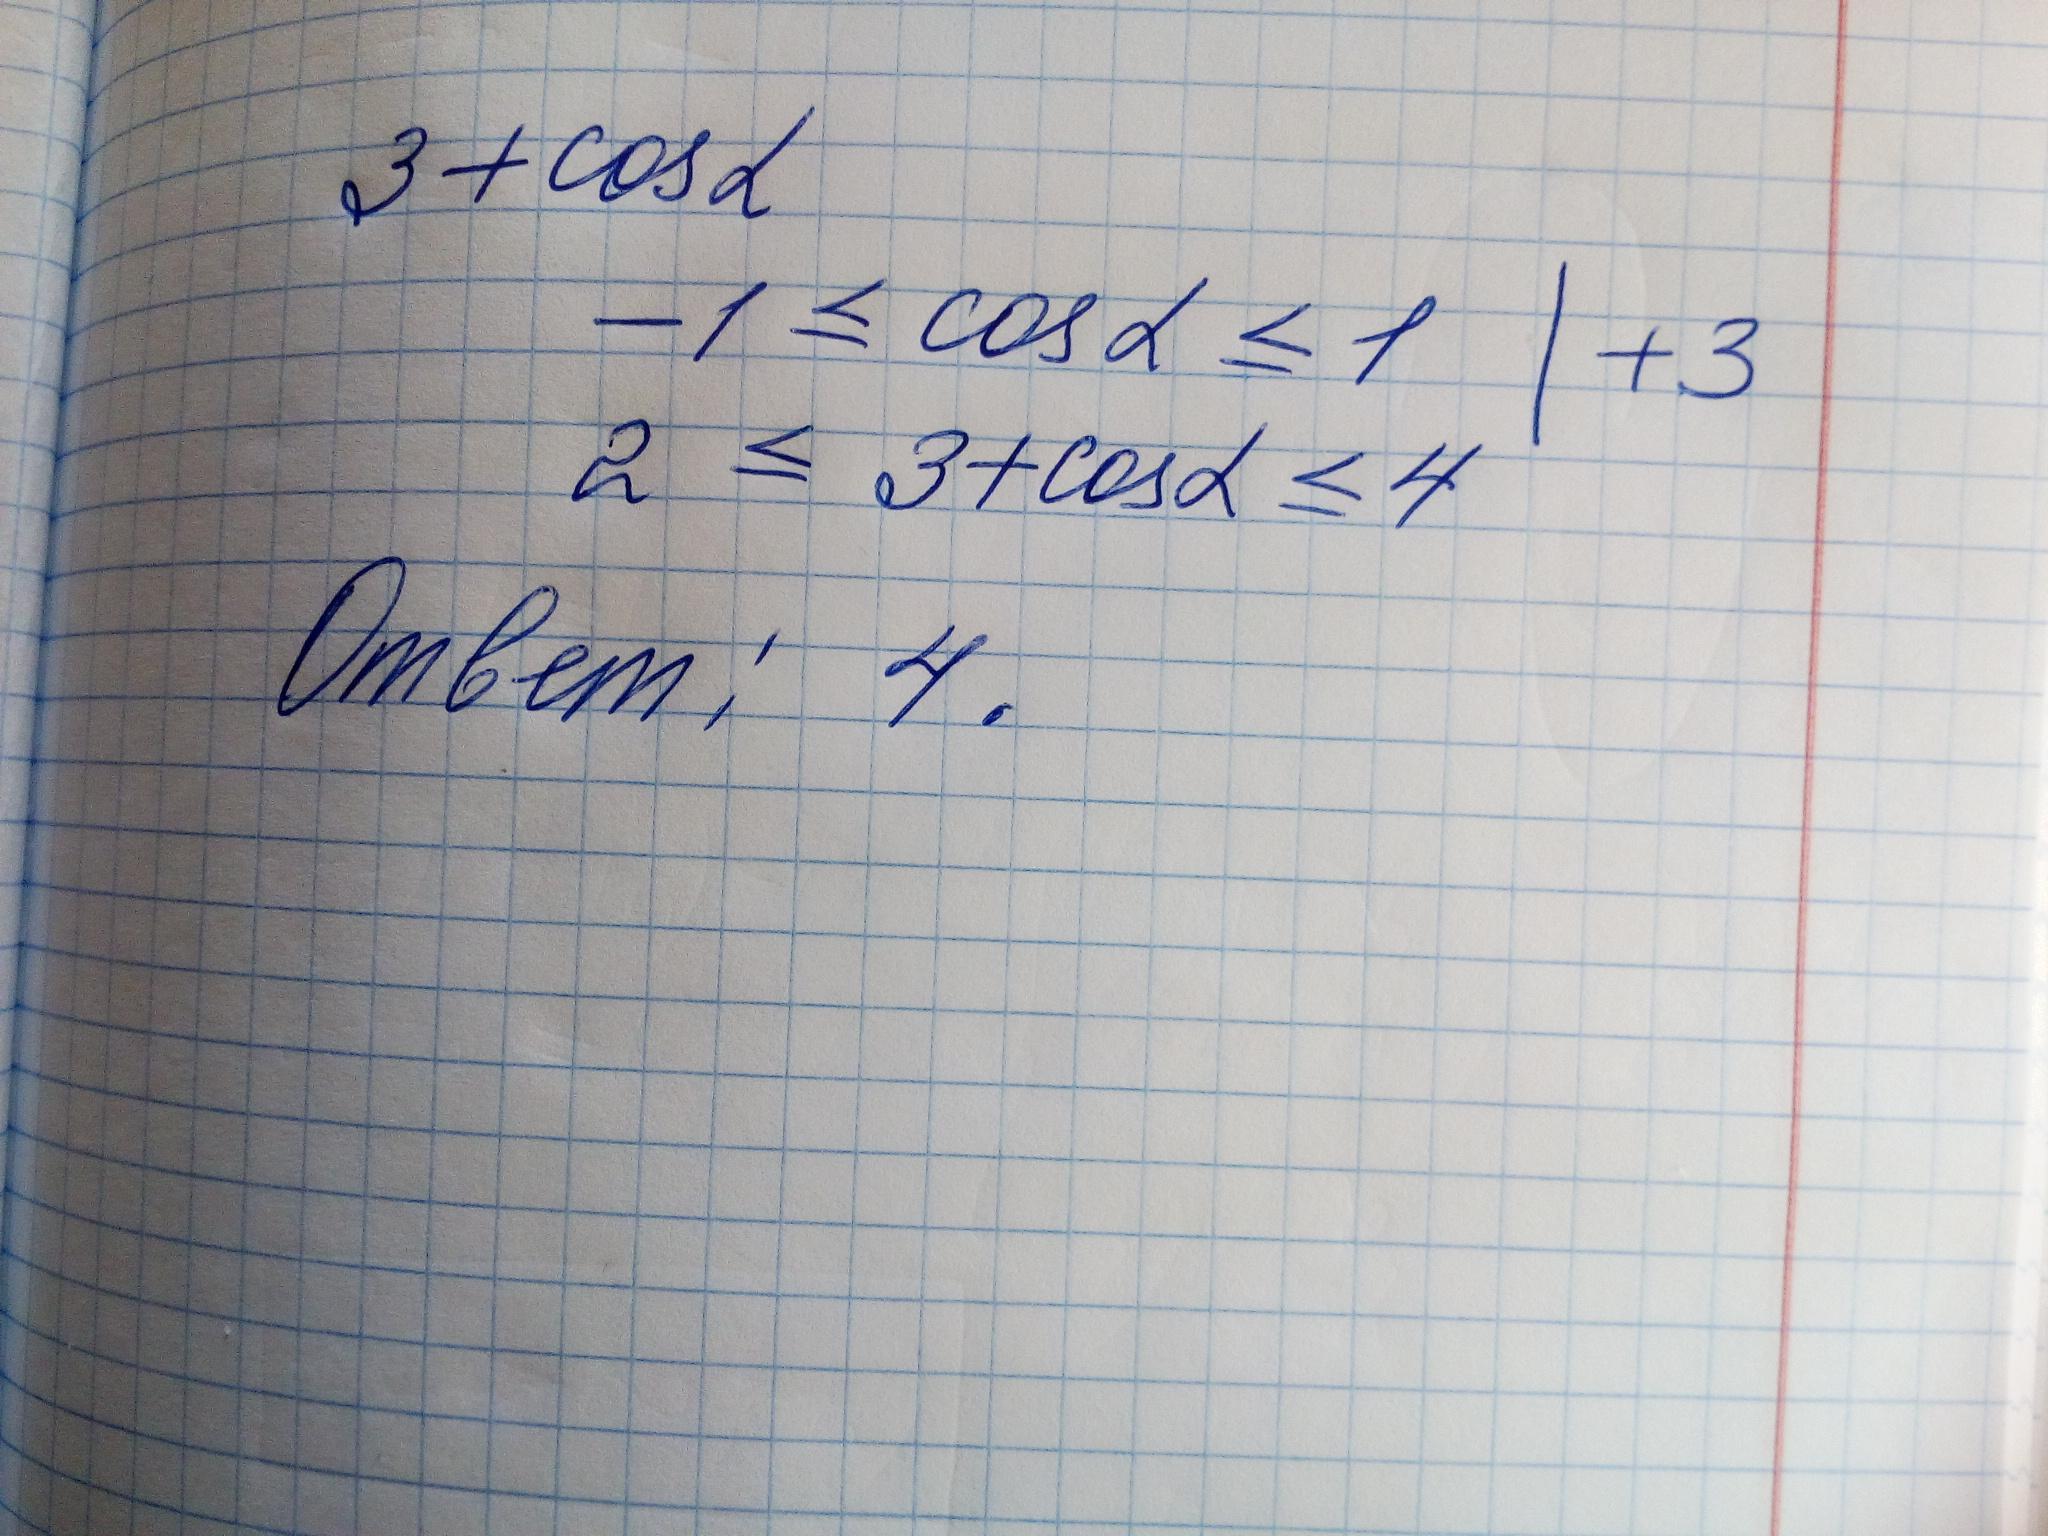 3+cosα
-1 ≤ cosα ≤ 1 | +3
2 ≤ 3+cosα ≤ 4
Ответ: 4.